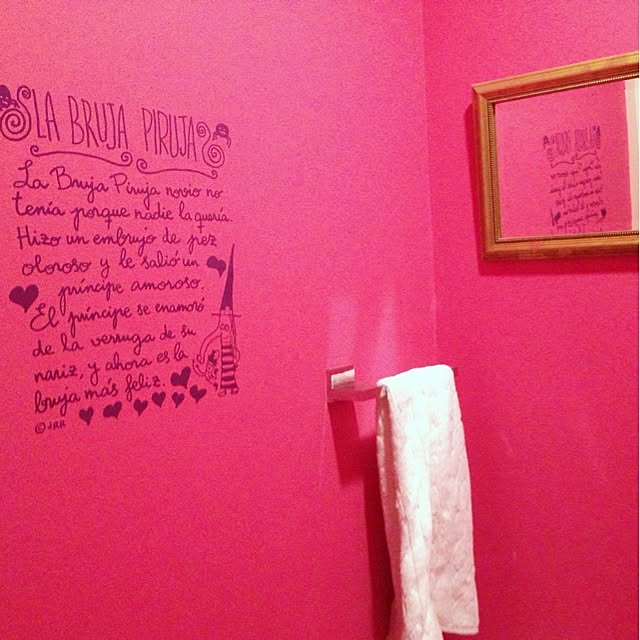 LA BRUJA PIRUJA
La Bruja Piruja novio no
tenía porque nadie la quería.
Hizo un embrujo de pez
oloroso y le salió un
príncipe amoroso.
El príncipe se enamoró
de la verruga de su
nariz, y ahora es la
bruja más feliz.
© JRR